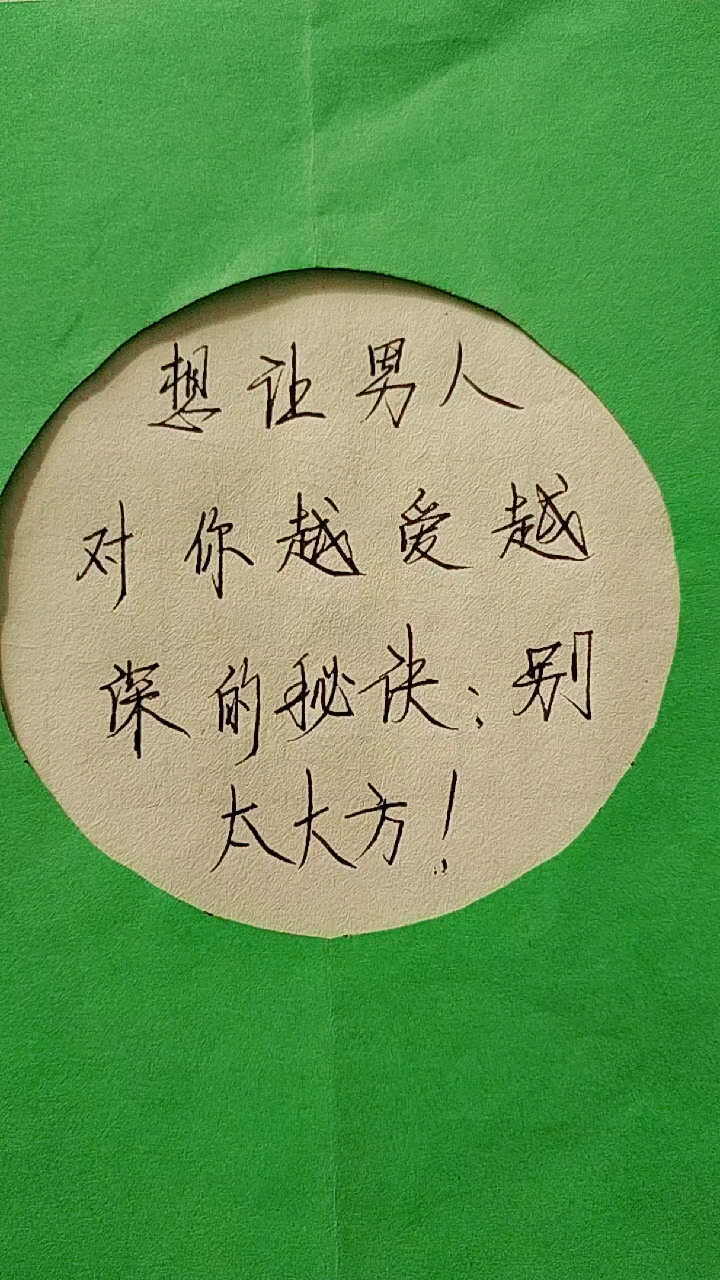 想让男人
对你越爱越
深的秘诀:别
太大方!